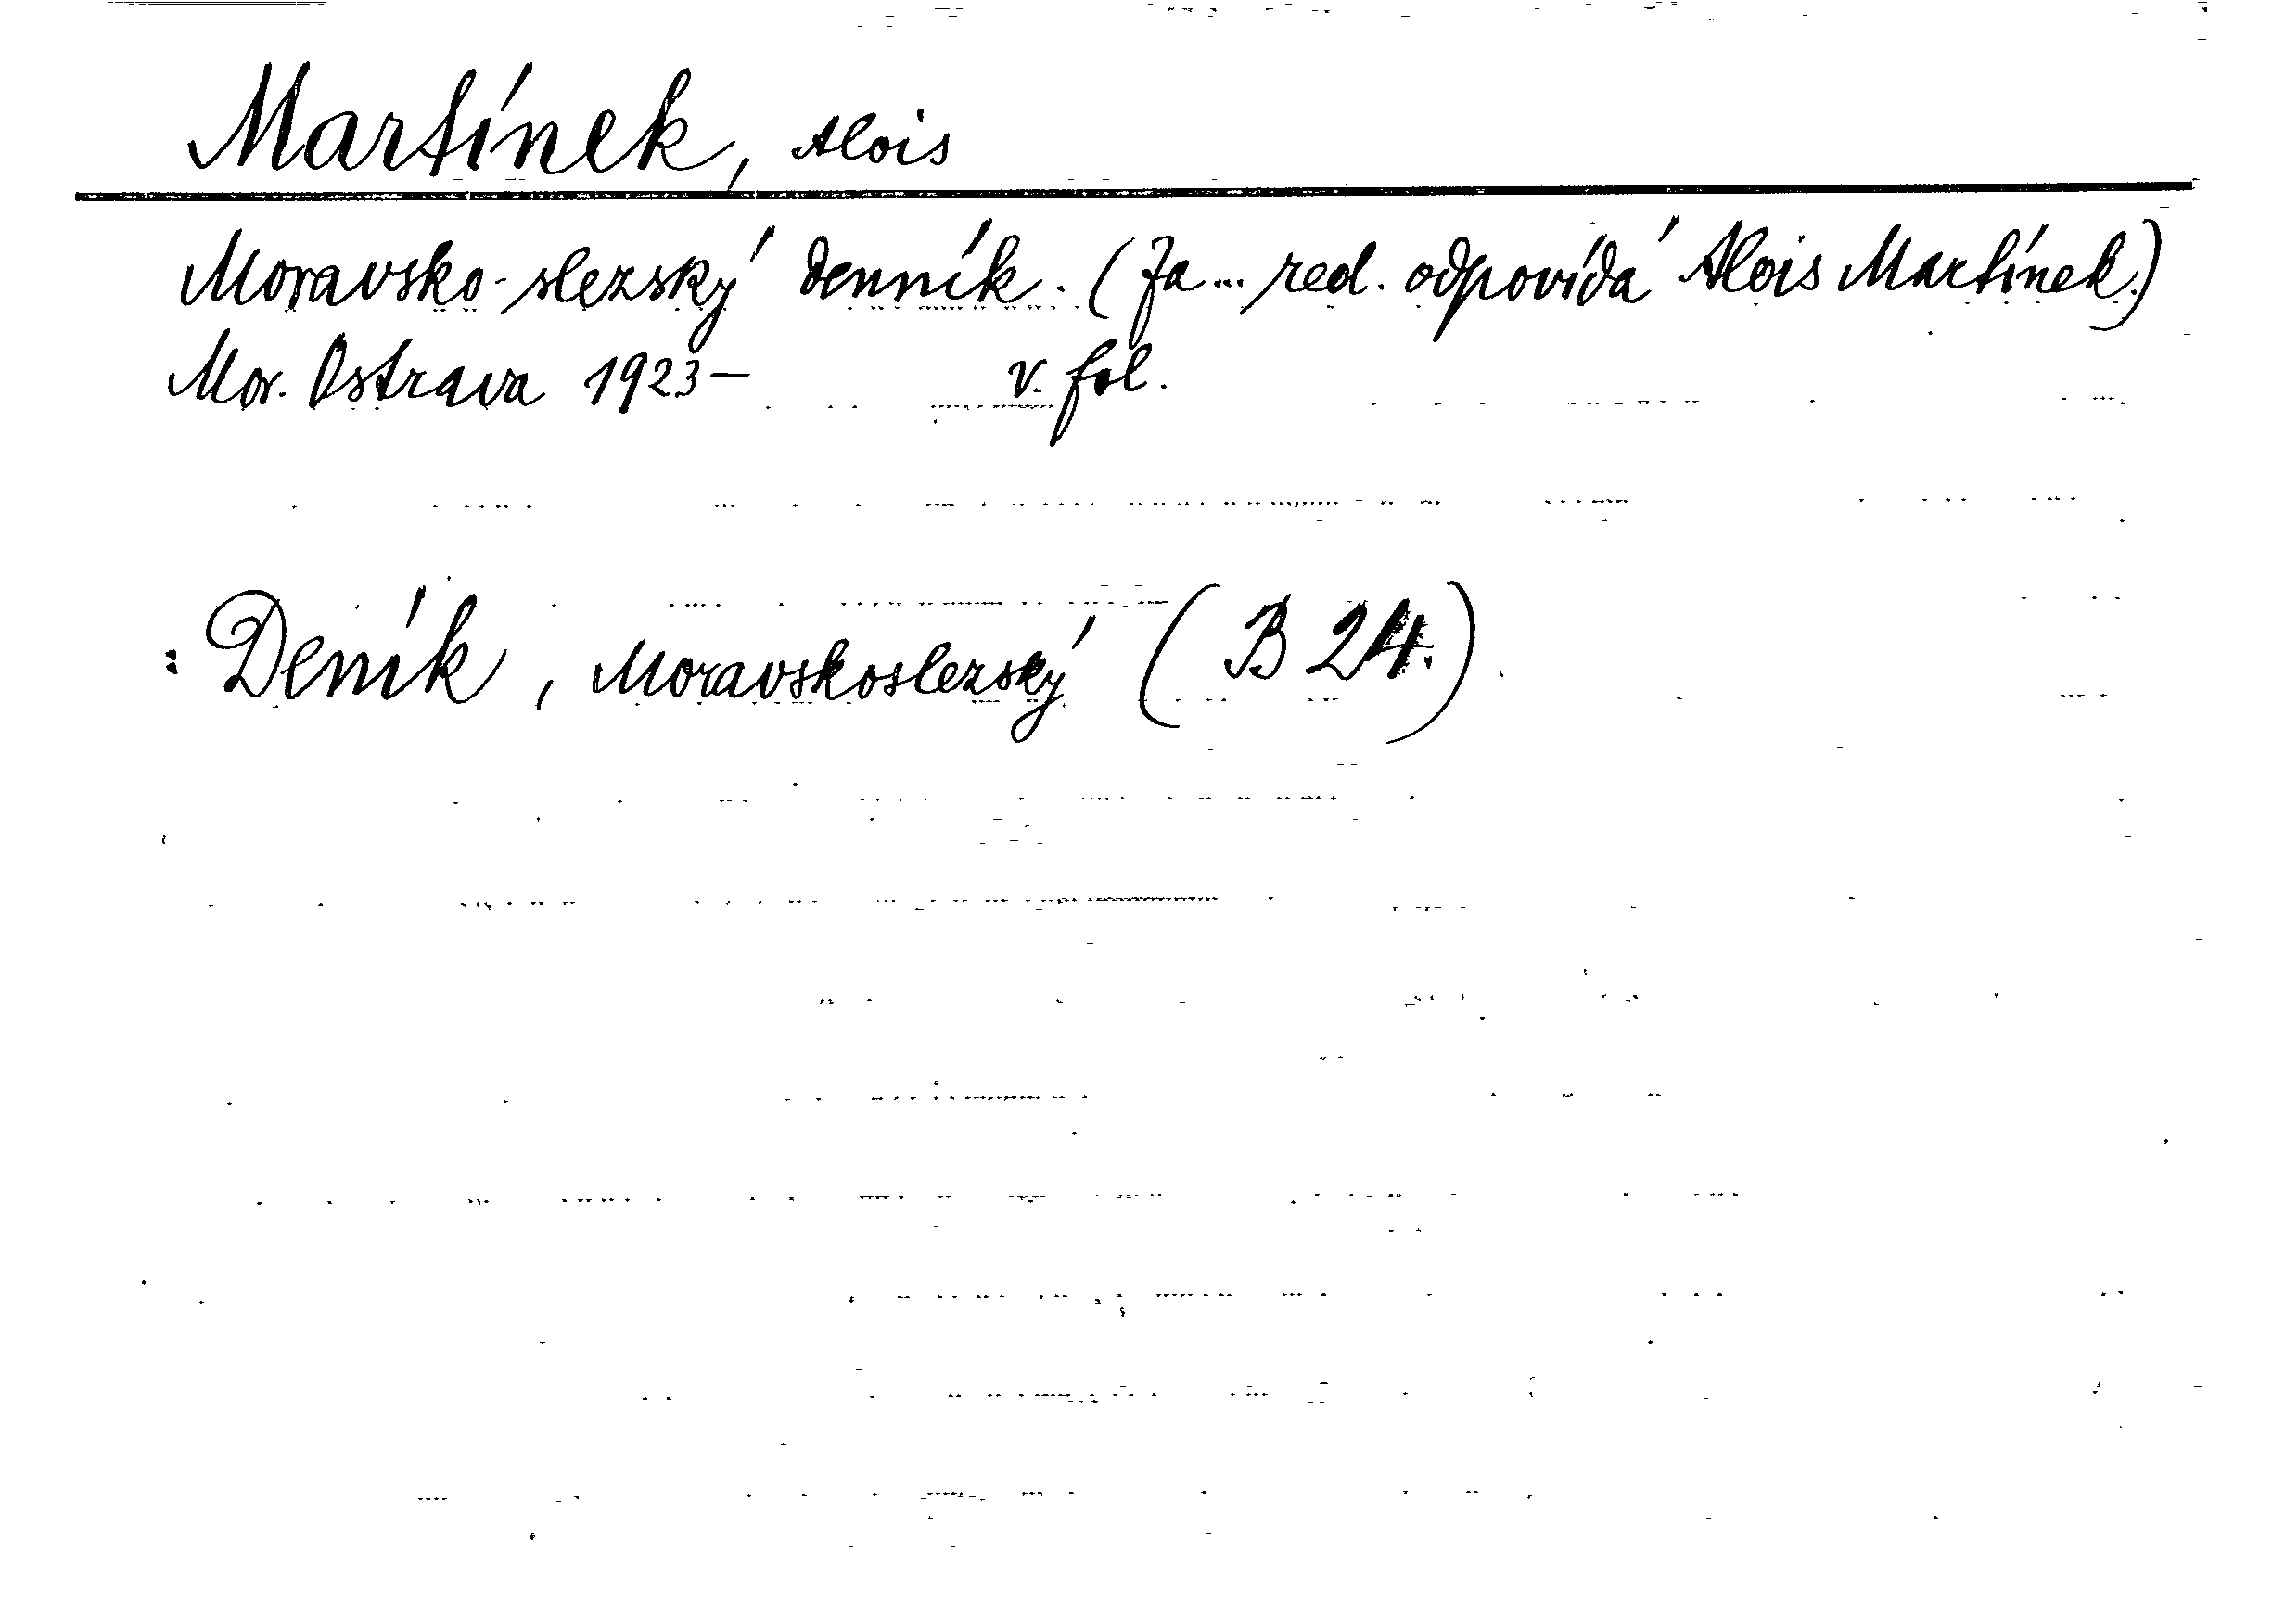 Martínek, Alois
Moravsko-slezský denník. (Za... red. odpovídá Alois Martínek.)
Mor. Ostrava 1923– v. fol.
: Deník, Moravskoslezský (B 24.)